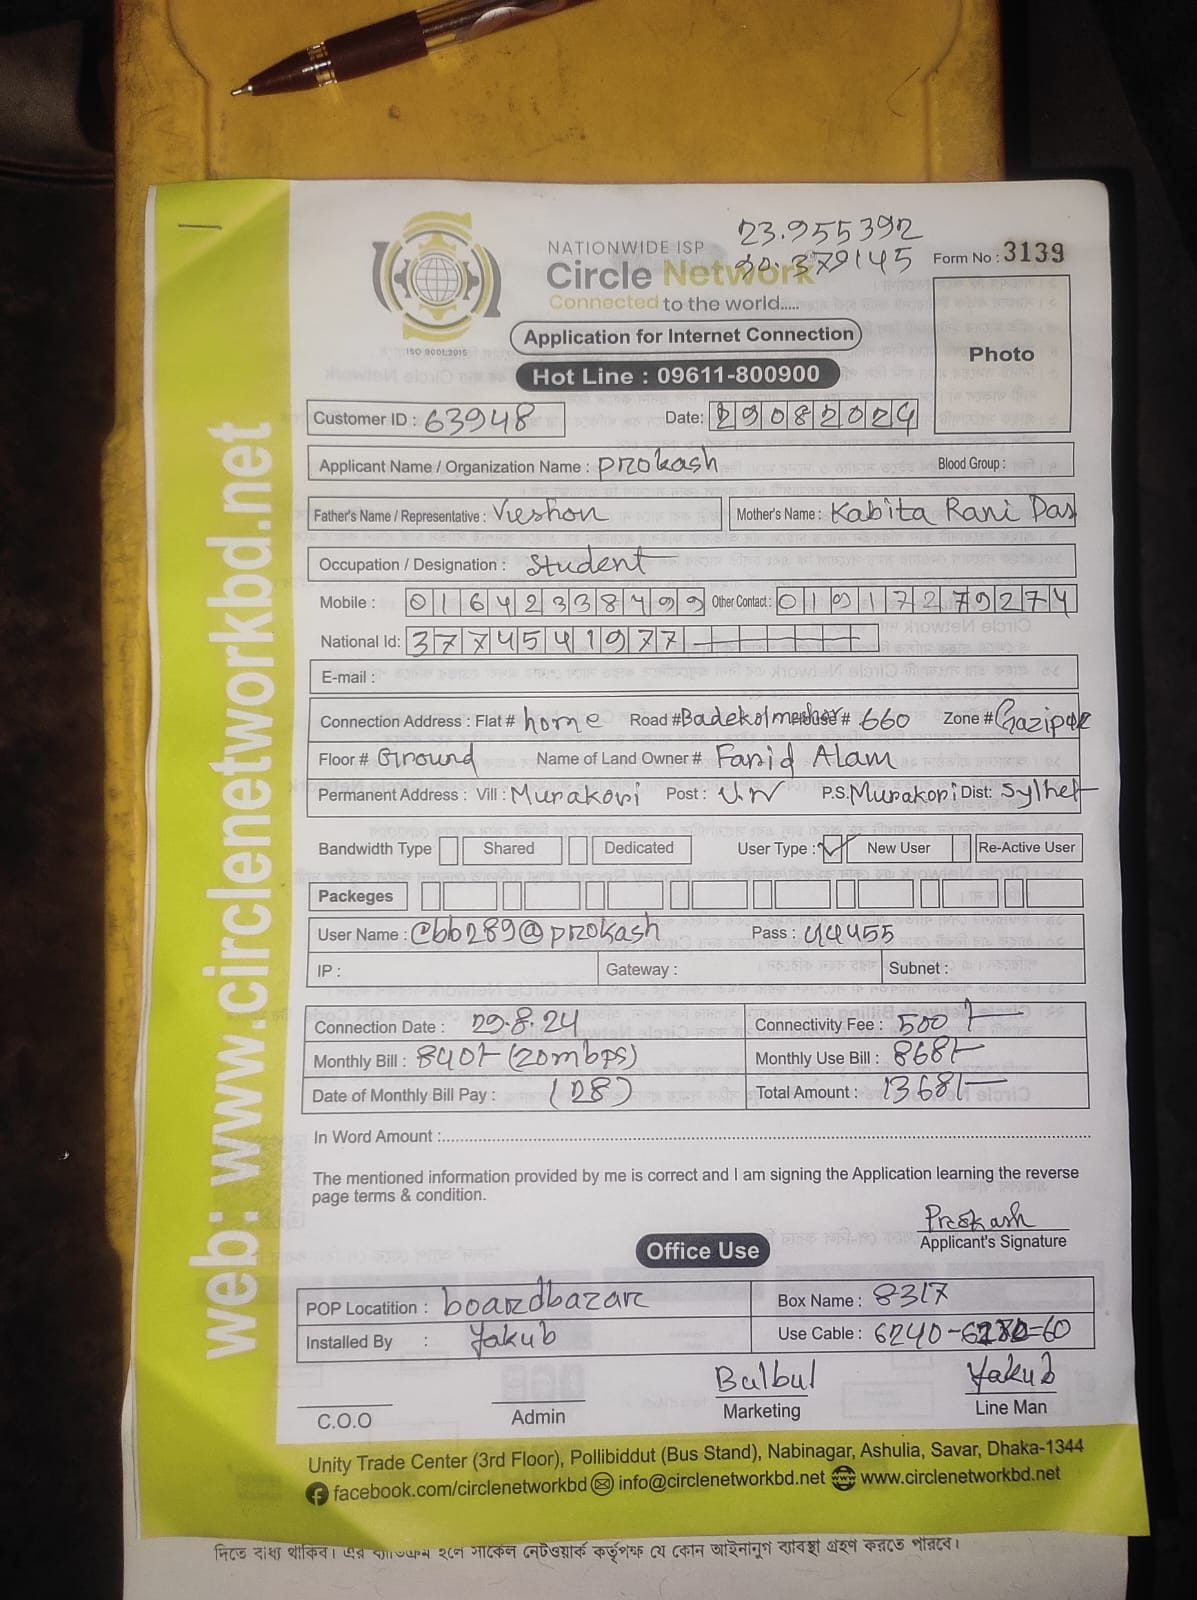 23.955392
NATIONWIDE ISP
90.379145
Form No : 3139
Circle Network
Connected to the world.....
ISO 9001:2015
Application for Internet Connection
Photo
Hot Line : 09611-800900
Customer ID : 63948 Date: 29082024
Applicant Name / Organization Name : Prokash Blood Group :
Father's Name / Representative : Keshon Mother's Name : Kabita Rani Das
Occupation / Designation : Student
Mobile : 01642338499 Other Contact : 01917279274
National Id: 3774541977
E-mail :
Connection Address : Flat # home Road # Badekolmeshor House # 660 Zone # Gazipur
Floor # Ground Name of Land Owner # Farid Alam
Permanent Address : Vill : Murakori Post : U.N P.S. Murakori Dist: Sylhet
Bandwidth Type Shared Dedicated User Type : New User Re-Active User
Packeges
User Name : Cbb289@prokash Pass : 44455
IP : Gateway : Subnet :
Connection Date : 29.8.24 Connectivity Fee : 500/-
Monthly Bill : 840/- (20mbps) Monthly Use Bill : 868/-
Date of Monthly Bill Pay : (28) Total Amount : 1368/-
In Word Amount :
The mentioned information provided by me is correct and I am signing the Application learning the reverse
page terms & condition.
Prokash
Applicant's Signature
Office Use
POP Locatition : boardbazar Box Name : 8317
Installed By : Yakub Use Cable : 6240-6180=60
Bulbul Yakub
C.O.O Admin Marketing Line Man
Unity Trade Center (3rd Floor), Pollibiddut (Bus Stand), Nabinagar, Ashulia, Savar, Dhaka-1344
facebook.com/circlenetworkbd info@circlenetworkbd.net www.circlenetworkbd.net
web: www.circlenetworkbd.net
দিতে বাধ্য থাকিব। এর ব্যতিক্রম হলে সার্কেল নেটওয়ার্ক কর্তৃপক্ষ যে কোন আইনানুগ ব্যবস্থা গ্রহণ করতে পারবে।